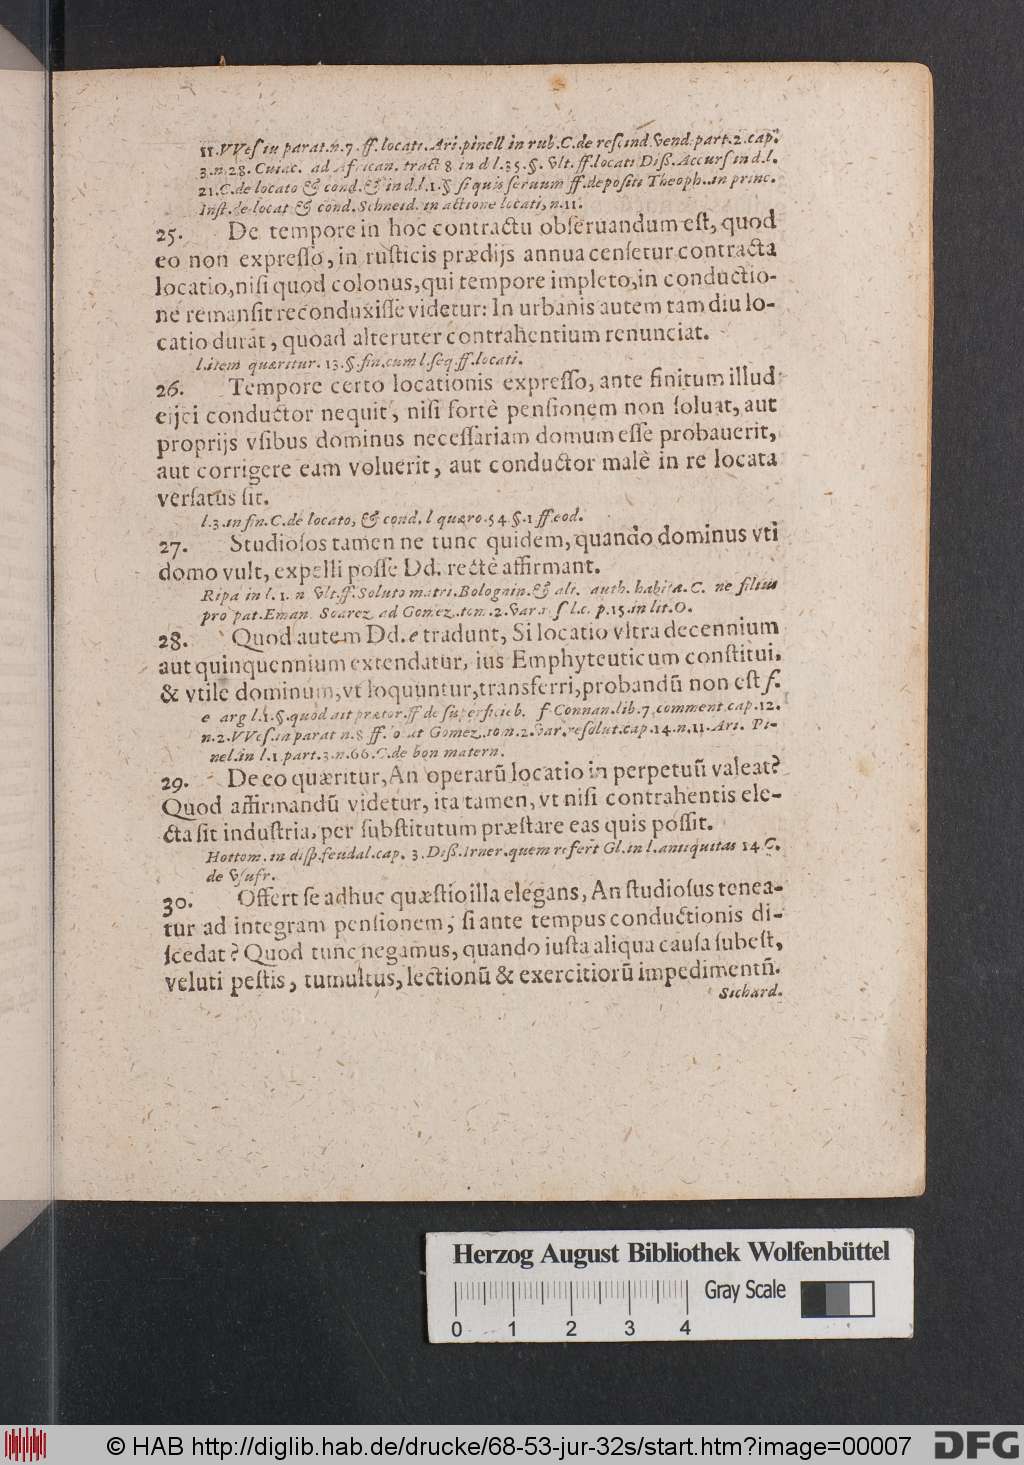 11. VVes in parat. n. 7. ff. locati. Ari. pinell in rub. C. de rescind. vend. part. 2. cap.
3. n. 28. Cuiac. ad African. tract 8 in d l. 35. §. vlt. ff. locati Diß. Accurs in d. l.
21. C. de locato & cond. & in d. l. 1. § si quis seruum ff. depositi Theoph. in princ.
Inst. de locat & cond. Schneid. in actione locati, n. 11.
25. De tempore in hoc contractu obseruandum est, quod
eo non expresso, in rusticis prædijs annua censetur contracta
locatio, nisi quod colonus, qui tempore impleto, in conductio-
ne remansit reconduxisse videtur: In urbanis autem tam diu lo-
catio durat, quoad alteruter contrahentium renunciat.
l. item quæritur. 13. §. fin. cum l. seq. ff. locati.
26. Tempore certo locationis expresso, ante finitum illud
eijci conductor nequit, nisi fortè pensionem non soluat, aut
proprijs vsibus dominus necessariam domum esse probauerit,
aut corrigere eam voluerit, aut conductor malè in re locata
versatus sit.
l. 3. in fin. C. de locato, & cond. l quæro. 54 §. 1 ff. eod.
27. Studiosos tamen ne tunc quidem, quando dominus vti
domo vult, expelli posse Dd. rectè affirmant.
Ripa in l. 1. n vlt. ff. Soluto matri. Bolognin. & alt. auth. habita. C. ne filius
pro pat. Eman. Soarez ad Gomez. tom. 2. Var. l. c. p. 15. in lit. O.
28. Quod autem Dd. e tradunt, Si locatio vltra decennium
aut quinquennium extendatur, ius Emphyteuticum constitui,
& vtile dominum, vt loquuntur, transferri, probandũ non est f.
e arg l. 1. §. quod ait prætor. ff de superficieb. f Connan. lib. 7. comment. cap. 12.
n. 2. VVes. in parat n. 8 ff. locat Gomez. to n. 2. var. resolut. cap. 14. n. 11. Ari. Pi-
nel. in l. 1 part. 3. n. 66. C. de bon matern.
29. De eo quæritur, An operarũ locatio in perpetuũ valeat?
Quod affirmandũ videtur, ita tamen, vt nisi contrahentis ele-
cta sit industria, per substitutum præstare eas quis possit.
Hottom. in disp. feudal. cap. 3. Diß. Irner. quem refert Gl. in l. antiquitas 14 C.
de vsufr.
30. Offert se adhuc quæstio illa elegans, An studiosus tenea-
tur ad integram pensionem, si ante tempus conductionis di-
scedat? Quod tunc negamus, quando iusta aliqua causa subest,
veluti pestis, tumultus, lectionũ & exercitiorũ impedimentũ.
Sichard.
Herzog August Bibliothek Wolfenbüttel
Gray Scale
0 1 2 3 4
© HAB http://diglib.hab.de/drucke/68-53-jur-32s/start.htm?image=00007
DFG